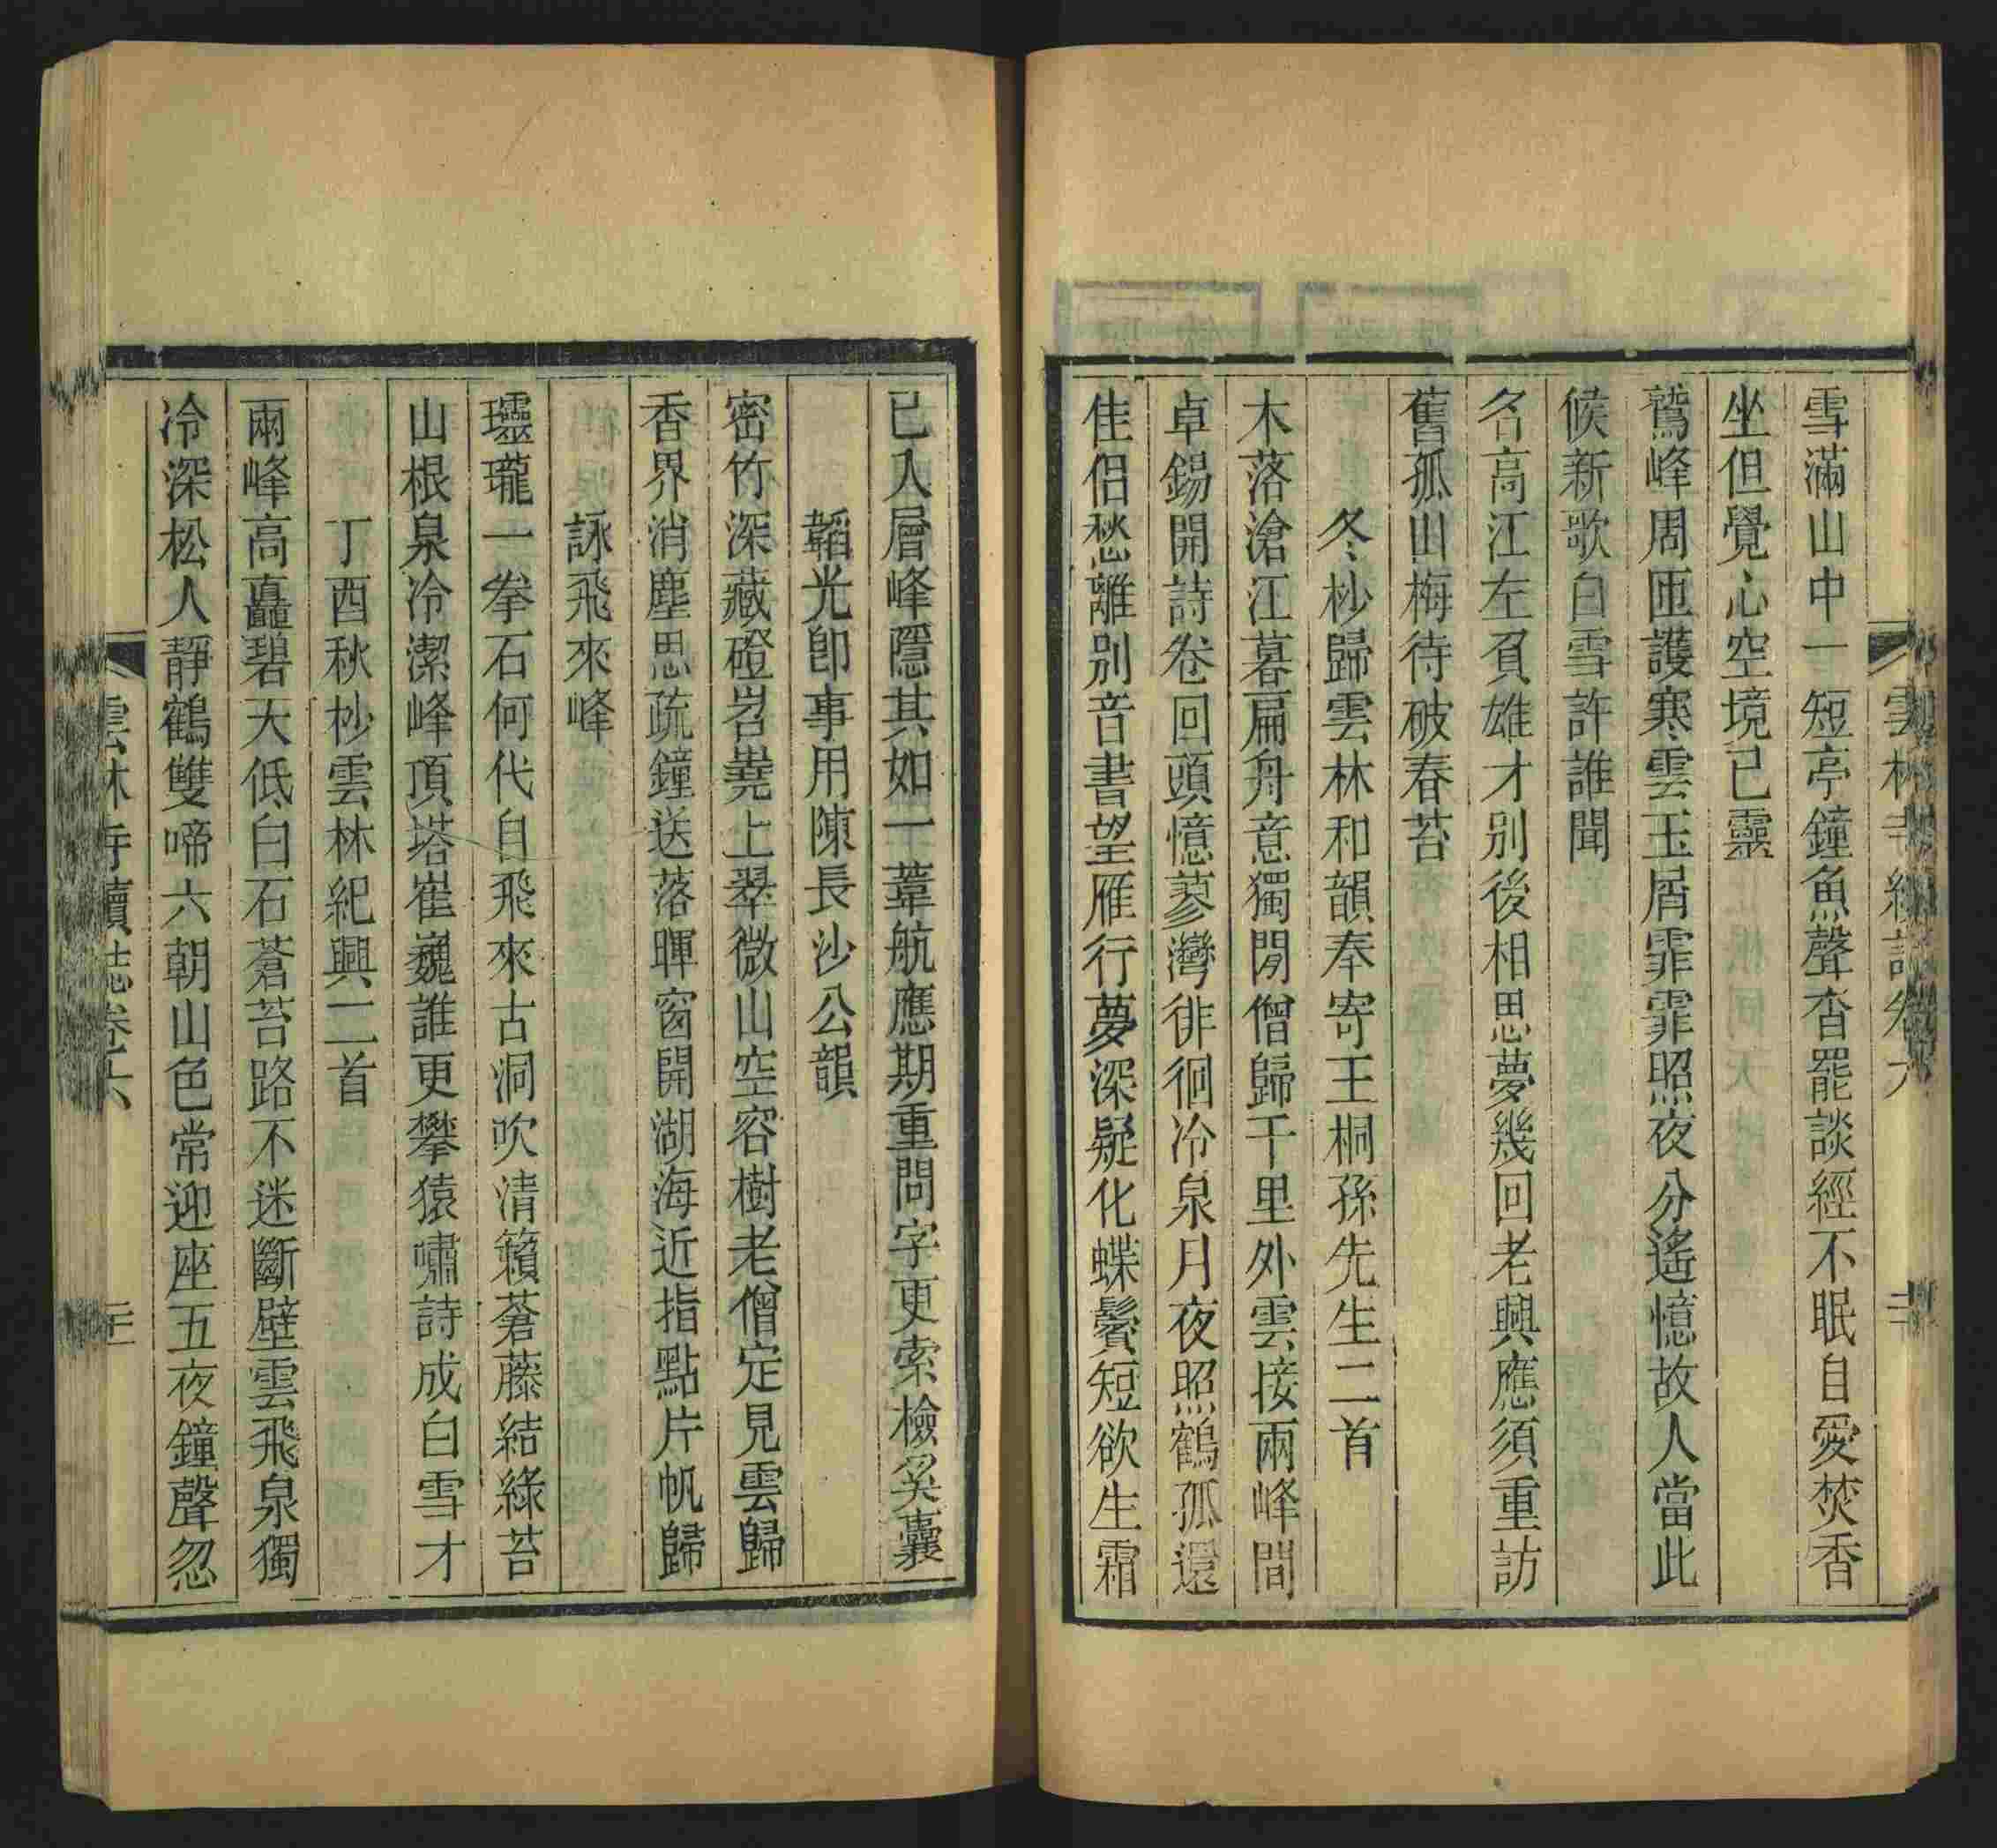 雪滿山中一短亭鐘魚聲杳罷談經不眠自愛焚香
坐但覺心空境已靈
鷲峰周匝護寒雲玉屑霏霏照夜分遙憶故人當此
候新歌白雪許誰聞
名高江左負雄才別後相思夢幾回老興應須重訪
舊孤山梅待破春苔
冬杪歸雲林和韻奉寄王桐孫先生二首
木落滄江暮扁舟意獨閒僧歸千里外雲接兩峰間
卓錫開詩卷回頭憶蓼灣徘徊冷泉月夜照鶴孤還
佳侶愁離別音書望雁行夢深疑化蝶鬢短欲生霜
已入層峰隱其如一葦航應期重問字更索檢奚囊
韜光卽事用陳長沙公韻
密竹深藏磴岧嶤上翠微山空容樹老僧定見雲歸
香界消塵思疏鐘送落暉窗開湖海近指點片帆歸
詠飛來峰
瓏一拳石何代自飛來古洞吹清籟蒼藤結綠苔
山根泉冷潔峰頂塔崔巍誰更攀猿嘯詩成白雪才
丁酉秋杪雲林紀興二首
兩峰高矗碧天低白石蒼苔路不迷斷壁雲飛泉獨
冷深松人靜鶴雙啼六朝山色常迎座五夜鐘聲忽
雲林寺續誌卷六